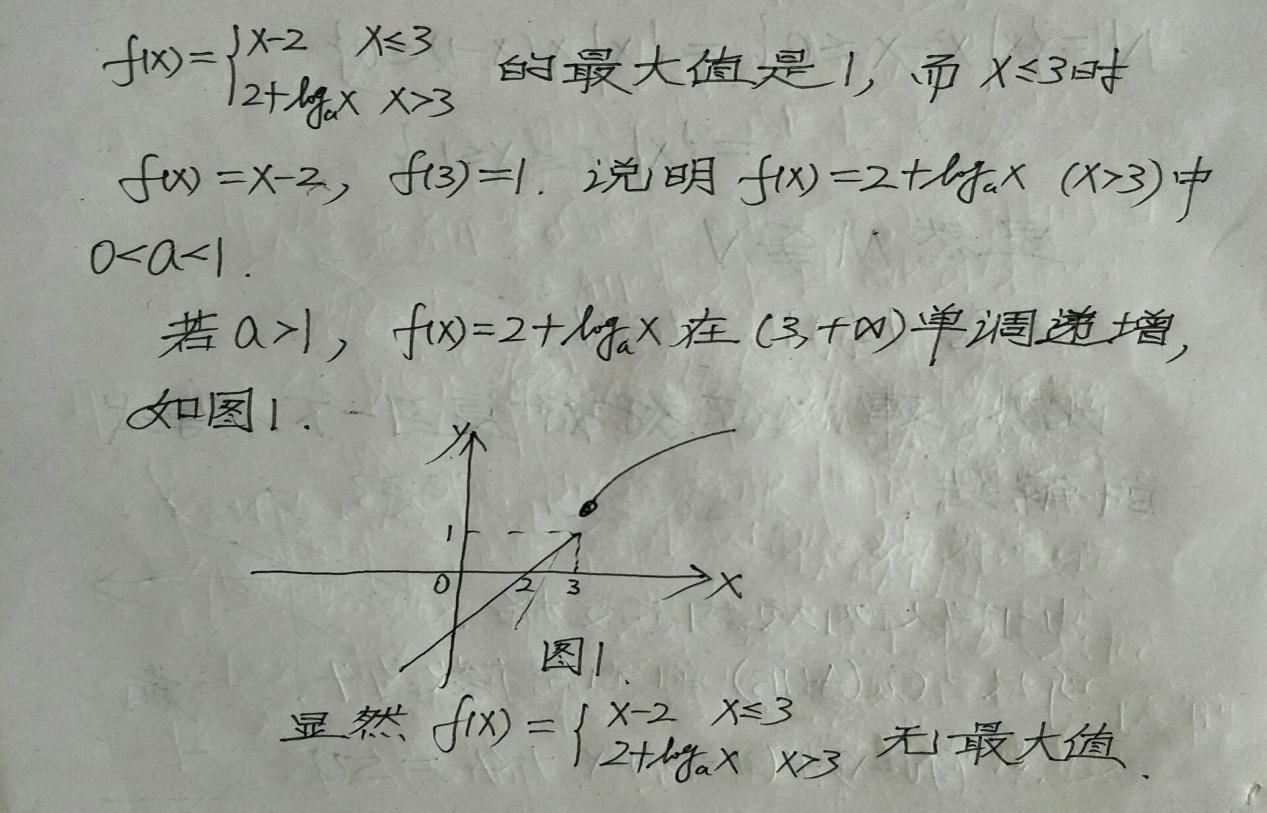 f(x)={x-2 x≤3
2+logₐx x>3 的最大值是1, 而 x≤3时
f(x)=x-2, f(3)=1. 说明 f(x)=2+logₐx (x>3)中
0<a<1.
若 a>1, f(x)=2+logₐx 在 (3,+∞)单调递增,
如图1.
y
1
0 2 3 x
图1.
显然 f(x)={x-2 x≤3
2+logₐx x>3 无最大值.